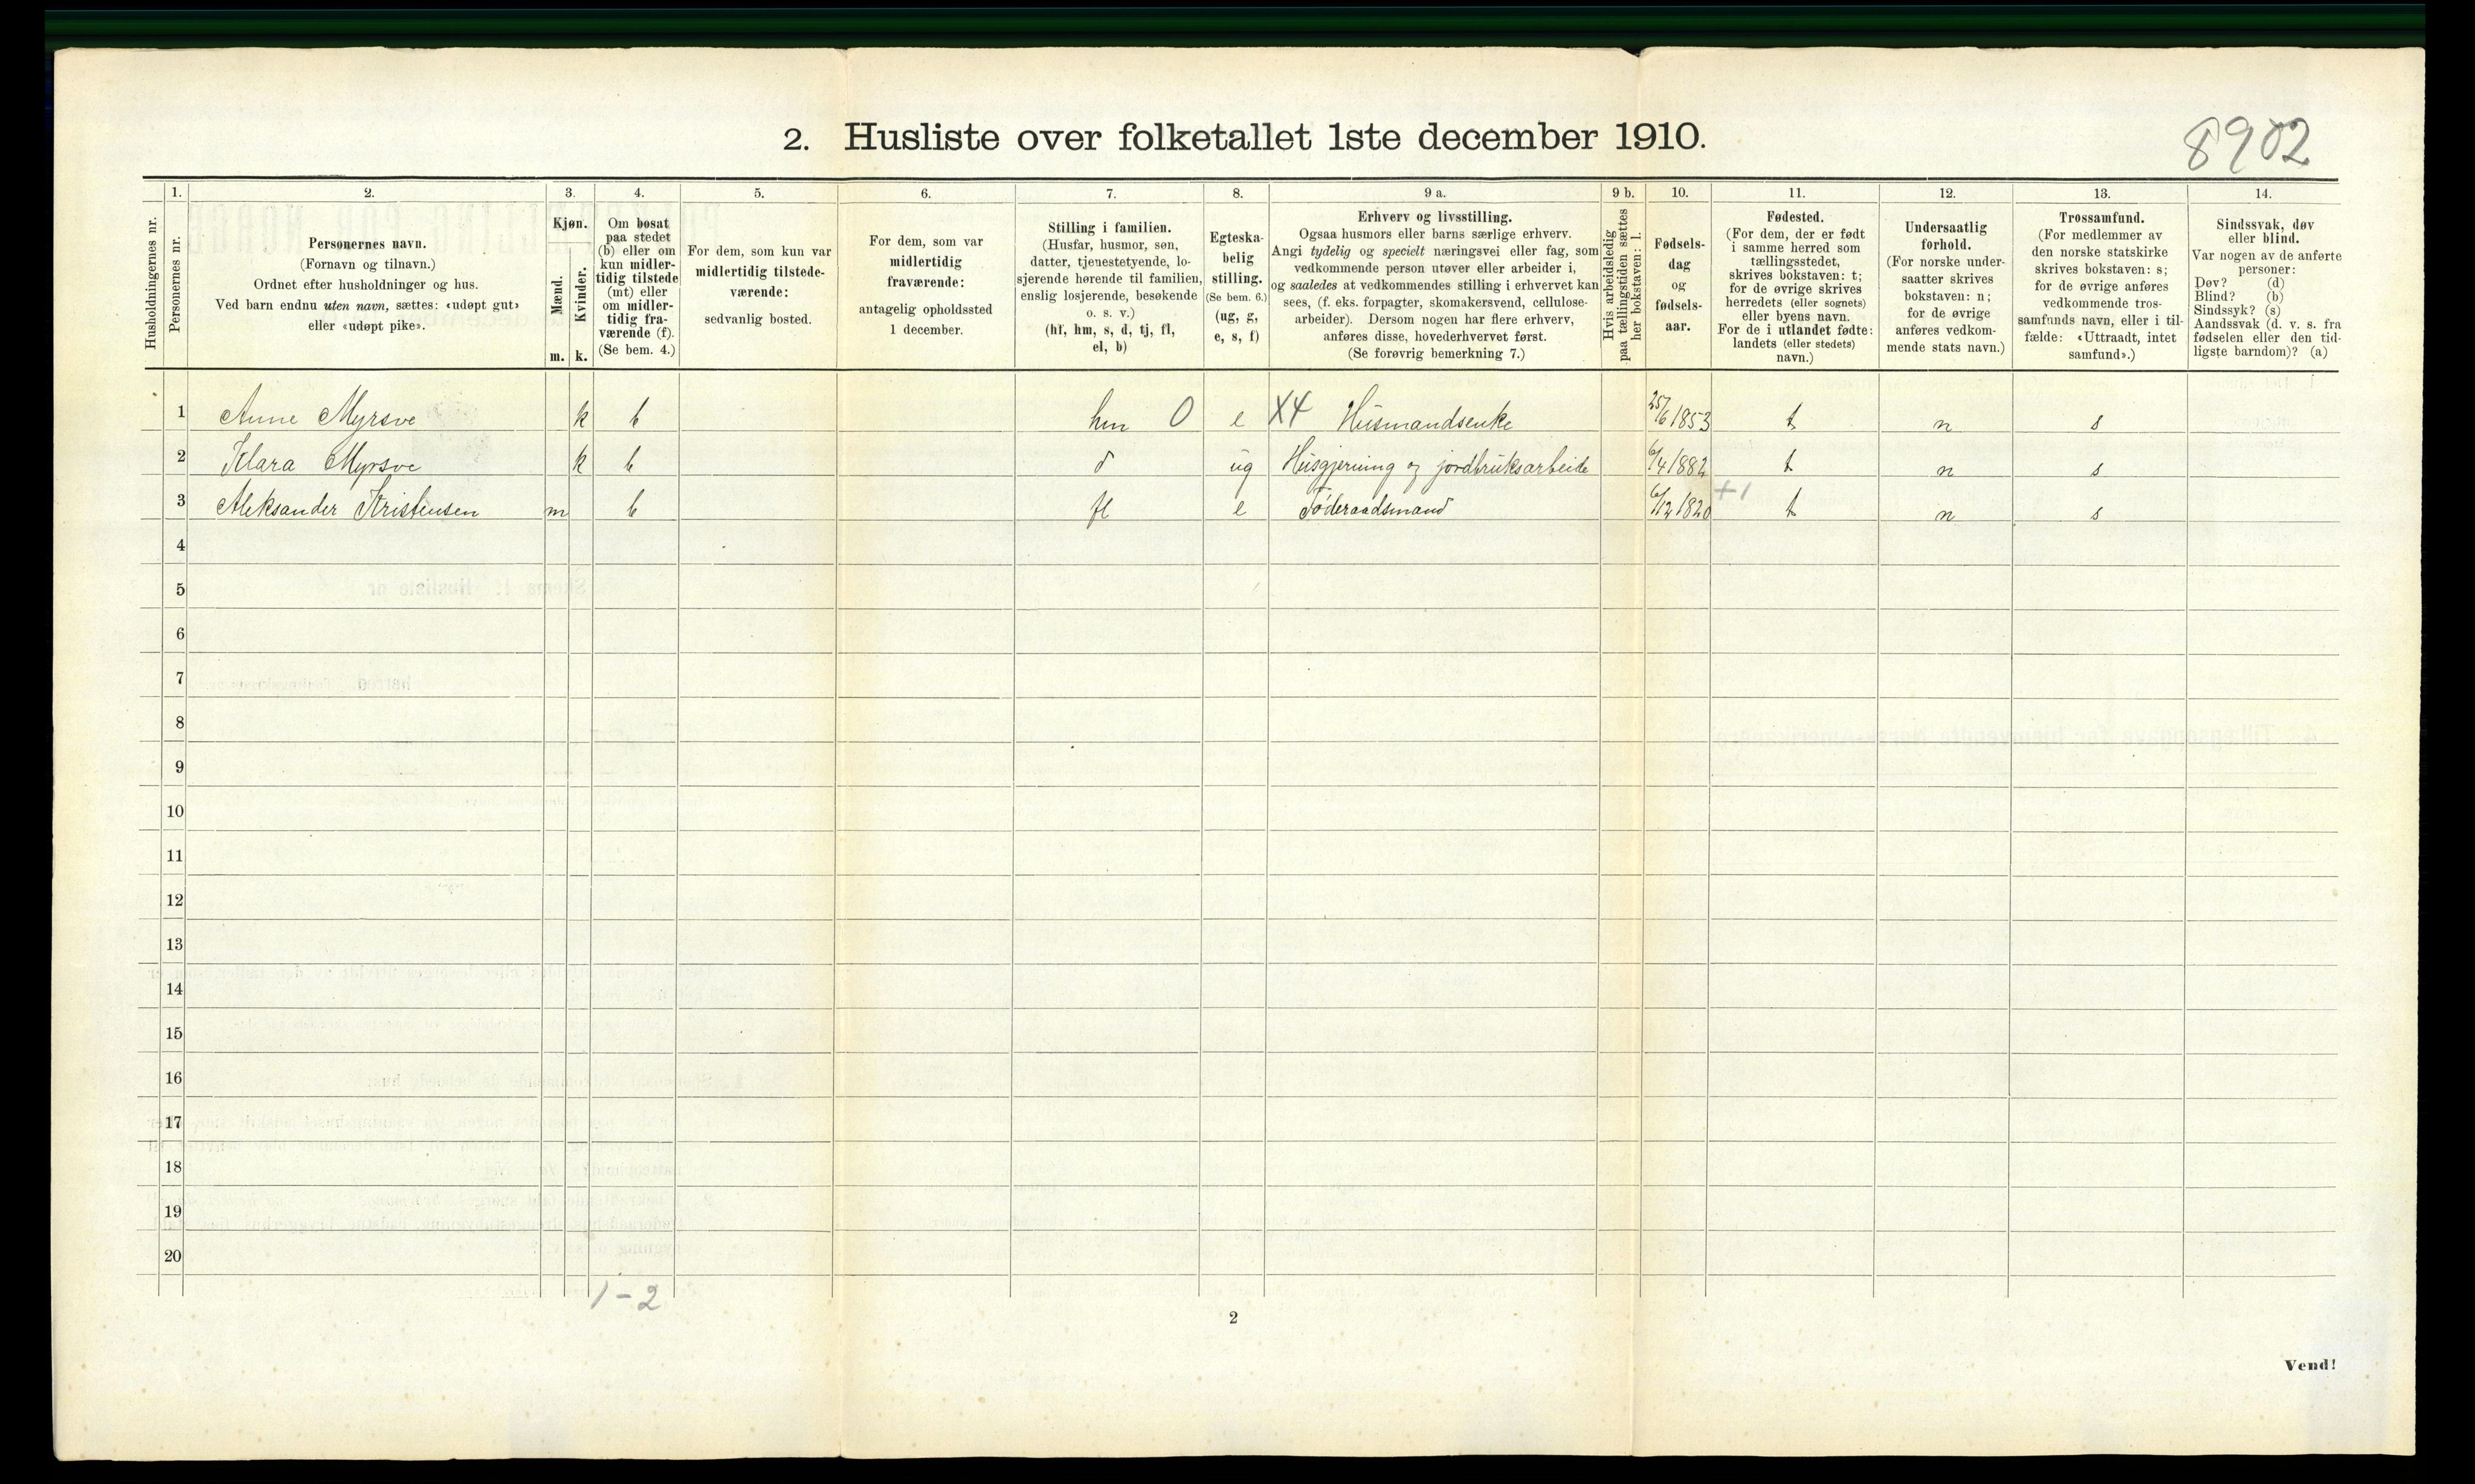 2. Husliste over folketallet 1ste december 1910.
8902
Husholdningernes nr.
1.
Personernes nr.
2.
Personernes navn.
(Fornavn og tilnavn.)
Ordnet efter husholdninger og hus.
Ved barn endnu uten navn, sættes: «udøpt gut»
eller «udøpt pike».
3.
Kjøn.
Mænd.
Kvinder.
m. k.
4.
Om bosat
paa stedet
(b) eller om
kun midler-
tidig tilstede
(mt) eller
om midler-
tidig fra-
værende (f).
(Se bem. 4.)
5.
For dem, som kun var
midlertidig tilstede-
værende:
sedvanlig bosted.
6.
For dem, som var
midlertidig
fraværende:
antagelig opholdssted
1 december.
7.
Stilling i familien.
(Husfar, husmor, søn,
datter, tjenestetyende, lo-
sjerende hørende til familien,
enslig losjerende, besøkende
o. s. v.)
(hf, hm, s, d, tj, fl,
el, b)
8.
Egteska-
belig
stilling.
(Se bem. 6.)
(ug, g,
e, s, f)
9 a.
Erhverv og livsstilling.
Ogsaa husmors eller barns særlige erhverv.
Angi tydelig og specielt næringsvei eller fag, som
vedkommende person utøver eller arbeider i,
og saaledes at vedkommendes stilling i erhvervet kan
sees, (f. eks. forpagter, skomakersvend, cellulose-
arbeider). Dersom nogen har flere erhverv,
anføres disse, hovederhvervet først.
(Se forøvrig bemerkning 7.)
9 b.
Hvis arbeidsledig
paa tællingstiden sættes
her bokstaven: l.
10.
Fødsels-
dag
og
fødsels-
aar.
11.
Fødested.
(For dem, der er født
i samme herred som
tællingsstedet,
skrives bokstaven: t;
for de øvrige skrives
herredets (eller sognets)
eller byens navn.
For de i utlandet fødte:
landets (eller stedets)
navn.)
12.
Undersaatlig
forhold.
(For norske under-
saatter skrives
bokstaven: n;
for de øvrige
anføres vedkom-
mende stats navn.)
13.
Trossamfund.
(For medlemmer av
den norske statskirke
skrives bokstaven: s;
for de øvrige anføres
vedkommende tros-
samfunds navn, eller i til-
fælde: «Uttraadt, intet
samfund».)
14.
Sindssvak, døv
eller blind.
Var nogen av de anførte
personer:
Døv? (d)
Blind? (b)
Sindssyk? (s)
Aandssvak (d. v. s. fra
fødselen eller den tid-
ligste barndom)? (a)
1 Anne Myrsve k b hm 0 e X4 Husmandsenke 25/6 1853 t n s
2 Klara Myrsve k b d ug Husgjerning og jordbruksarbeide 6/4 1882 t n s
3 Aleksander Kristensen m b fl e Føderaadsmand 6/12 1820 +1 t n s
4
5
6
7
8
9
10
11
12
13
14
15
16
17
18
19
20
1-2
2
Vend!